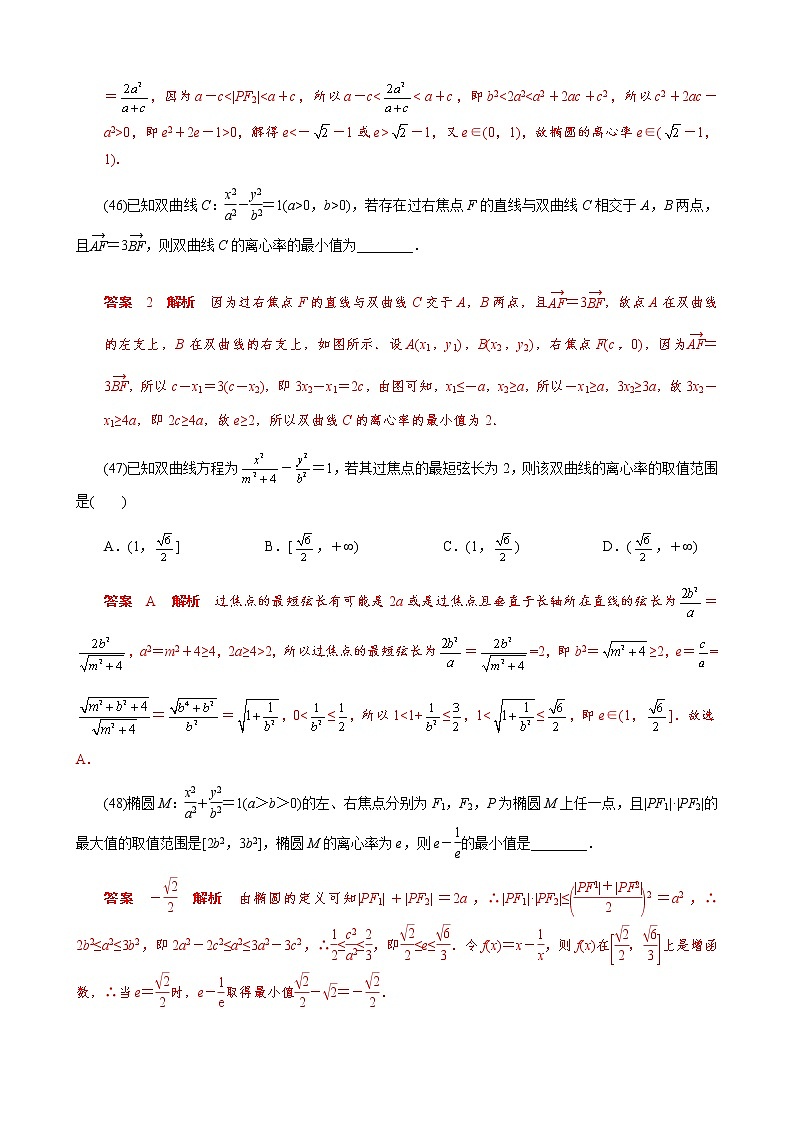 =2a²/(a+c)，因为a－c<|PF₂|<a+c，所以a－c<2a²/(a+c)<a+c，即b²<2a²<a²+2ac+c²，所以c²+2ac－
a²>0，即e²+2e－1>0，解得e<－√2－1或e>√2－1，又e∈(0，1)，故椭圆的离心率e∈(√2－1，
1)．
(46)已知双曲线C：x²/a²－y²/b²＝1(a>0，b>0)，若存在过右焦点F的直线与双曲线C相交于A，B两点，
且→AF＝3→BF，则双曲线C的离心率的最小值为________．
答案 2 解析 因为过右焦点F的直线与双曲线C交于A，B两点，且→AF＝3→BF，故点A在双曲线
的左支上，B在双曲线的右支上，如图所示．设A(x₁，y₁)，B(x₂，y₂)，右焦点F(c，0)，因为→AF＝
3→BF，所以c－x₁＝3(c－x₂)，即3x₂－x₁＝2c，由图可知，x₁≤－a，x₂≥a，所以－x₁≥a，3x₂≥3a，故3x₂－
x₁≥4a，即2c≥4a，故e≥2，所以双曲线C的离心率的最小值为2．
(47)已知双曲线方程为x²/(m²+4)－y²/b²＝1，若其过焦点的最短弦长为2，则该双曲线的离心率的取值范围
是( )
A．(1，√6/2] B．[√6/2，+∞) C．(1，√6/2) D．(√6/2，+∞)
答案 A 解析 过焦点的最短弦长有可能是2a或是过焦点且垂直于长轴所在直线的弦长为2b²/a＝
2b²/√(m²+4)，a²＝m²+4≥4，2a≥4>2，所以过焦点的最短弦长为2b²/a＝2b²/√(m²+4)=2，即b²＝√(m²+4)≥2，e＝c/a=
√(m²+b²+4)/√(m²+4)＝√(b⁴+b²)/b²＝√(1+1/b²)，0<1/b²≤1/2，所以1<1+1/b²≤3/2，1<√(1+1/b²)≤√6/2，即e∈(1，√6/2]．故选
A．
(48)椭圆M：x²/a²+y²/b²＝1(a＞b＞0)的左、右焦点分别为F₁，F₂，P为椭圆M上任一点，且|PF₁|·|PF₂|的
最大值的取值范围是[2b²，3b²]，椭圆M的离心率为e，则e－1/e的最小值是________．
答案 －√2/2 解析 由椭圆的定义可知|PF₁|+|PF₂|＝2a，∴|PF₁|·|PF₂|≤((|PF₁|+|PF₂|)/2)²＝a²，∴
2b²≤a²≤3b²，即2a²－2c²≤a²≤3a²－3c²，∴1/2≤c²/a²≤2/3，即√2/2≤e≤√6/3．令f(x)＝x－1/x，则f(x)在[√2/2，√6/3]上是增函
数，∴当e＝√2/2时，e－1/e取得最小值√2/2－√2＝－√2/2．